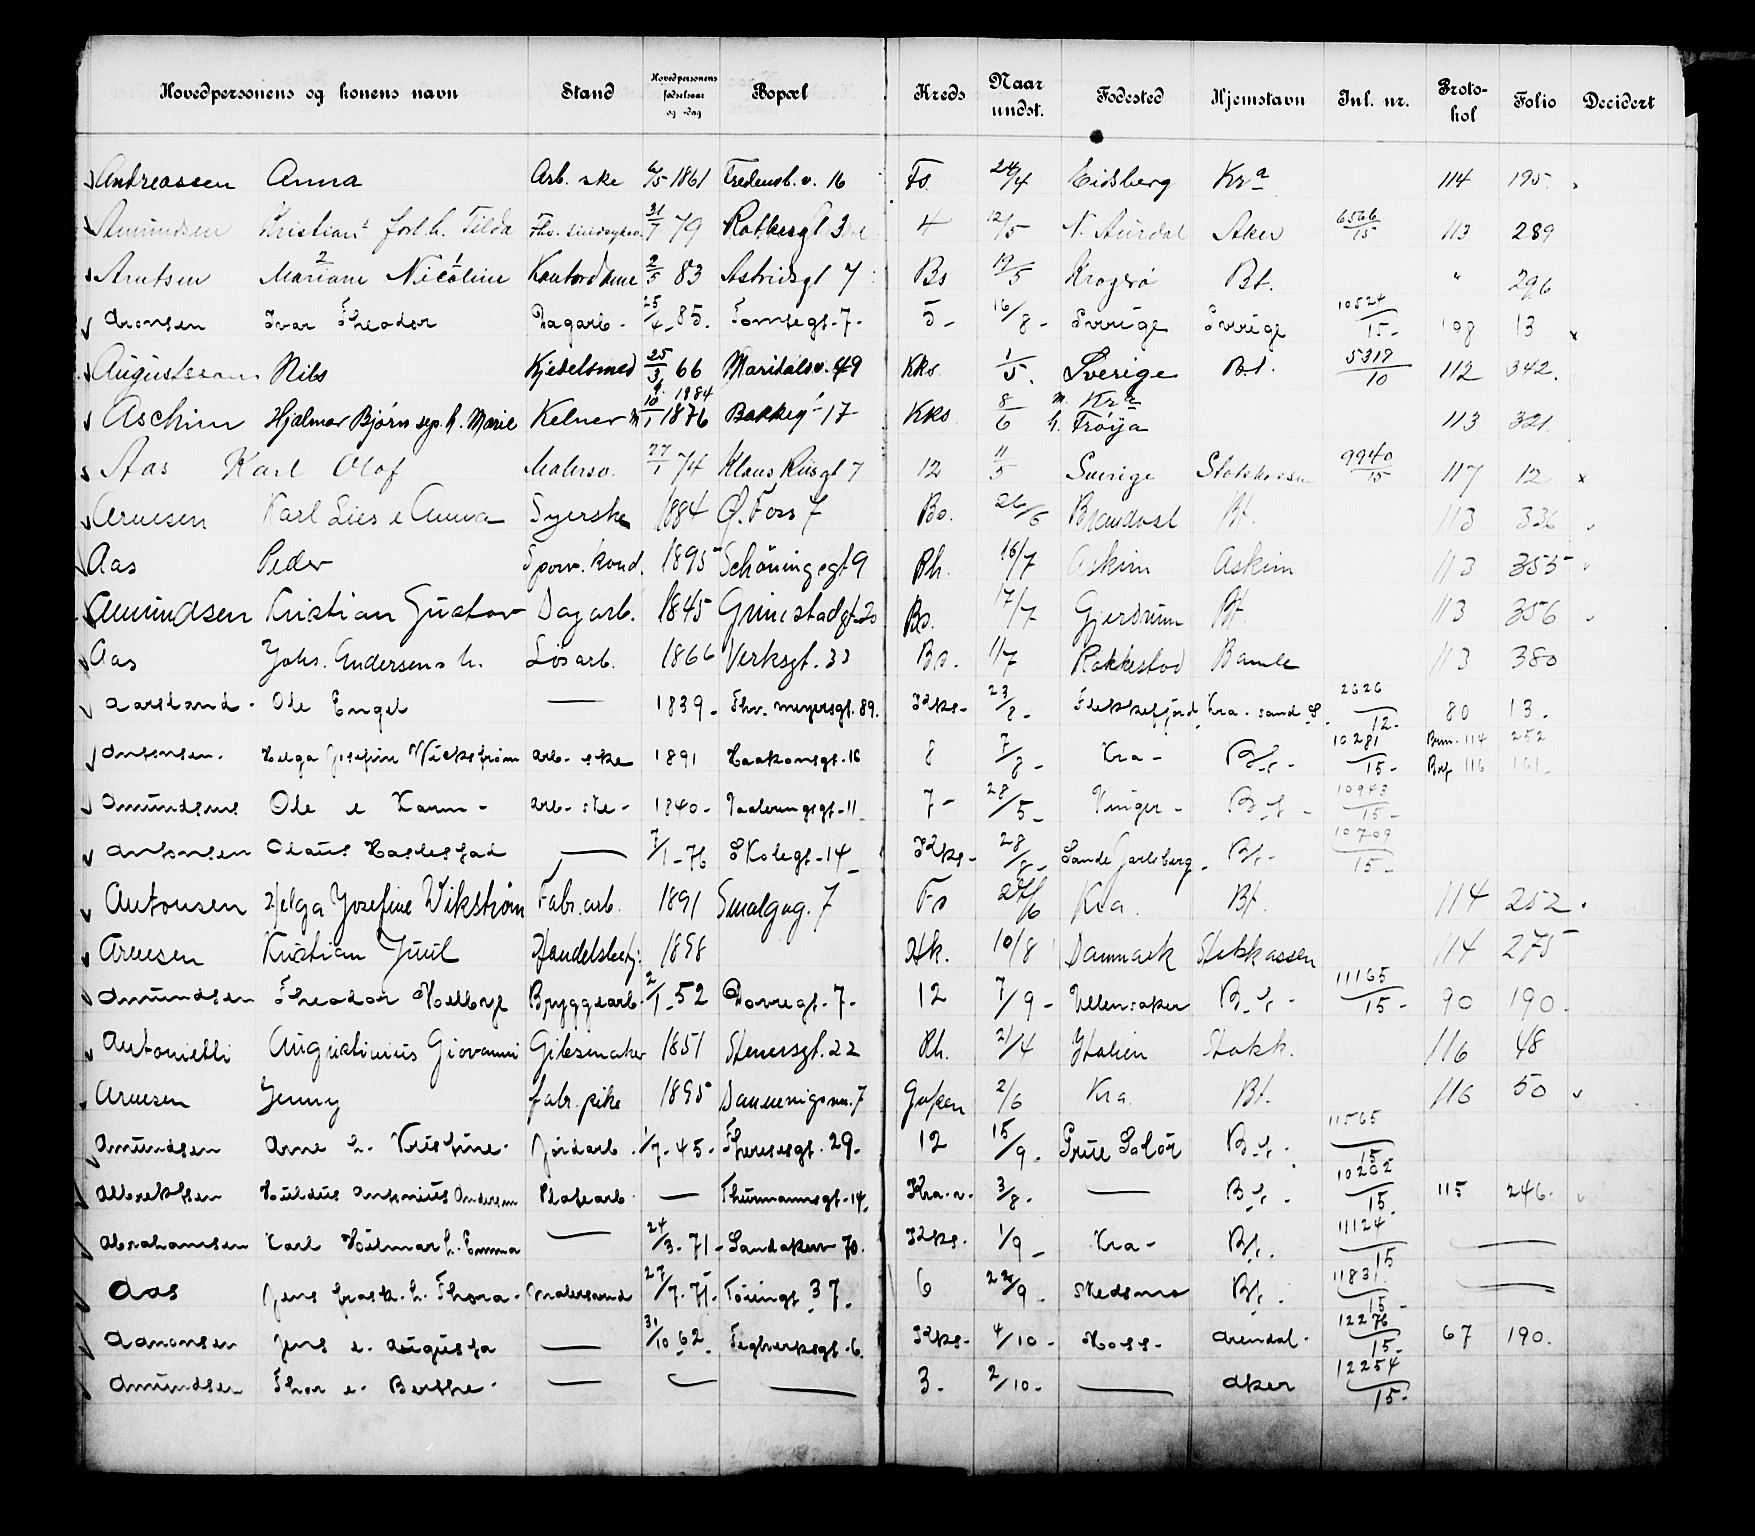 Hovedpersonens og konens navn Stand Hovedpersonens fødselsaar og -dag Bopæl Kreds Naar undst. Fødested Hjemstavn Inl. nr. Protokol Folio Decidert
Andreassen Anna Arb. ske 6/5 1861 Fredensb.v. 16 Fs. 24/4 Eidsberg Kra 114 195
Amundsen Kristian forl. h. Tilda 31/7 79 4 12/5 N. Aurdal Aker 6566/15 113 289
Arntsen Mariane Nicoline Kontordame 2/5 83 Astridsgt 7 Bs 19/5 Kragerø Bt. " 296
Aronsen Ivar Theodor Dagarb. 25/4 85. Tomtegt. 7. 5 16/8 Sverige Sverige 10524/15 108 13 x
Augustsson Nils Kjedelsmed 25/3 66 Maridalsv. 49 Kks. 1/5. Sverige Bt. 5319/10 112 342.
Aschim Hjalmar Bjørn sep. h. Marie Kelner 10/1 1876 1884 Bakkeg 17 Kks 8/6 m. Kra h. Trøija 113 321
Aas Karl Olof Malersv. 27/1 74 Klaus Riisgt 7 12 11/5 Sverige Statskassen 9940/15 117 12 x
Arnesen Karl Lies e Anna Syerske 1884 Ø. Foss 7 Bs. 26/5 Brandval Bt. 113 336
Aas Peder Sporv. kond. 1895 Schöningsgt 9 Rh. 16/7 Askim Askim 113 355
Amundsen Kristian Gustav Dagarb. 1845 Grimstadgt. 20 Bs. 17/7 Gjerdrum Bt. 113 356
Aas Johs. Andersens h. Løsarb. 1866 Verksgt. 33 Bs. 1/7 Rakkestad Bamle 113 380
Aarstand. Ole Engel — 1839. Thv. Meyersgt. 89. Kks. 23/8. Flekkefjord Kra. sand S. 2626/12. 80 13.
Antonsen. Helga Josefine Wickstrøm arb. ske 1891 Haakonsgt. 16 8 7/8 Kra Bt. 10281/15 114 252
116 161
Amundsens Ole e Karen arb. ske 1840 Vaalerengsgt. 11 7 28/5 Vinger Bt. 10943/15
Antonsen Olaus Haslestad — 7/1 76 Skolegt. 14 Kks. 28/8 Sande Jarlsberg. Bt. 10709/15
Antonsen Helga Josefine Wikstrøm Fabr. arb. 1891 Smalgng. 7 Fs 24/6 Kra. Bt. 114 252
Arnesen Kristian Juul Handelsbetj. 1898 Hk. 10/8 Danmark Statskassen 114 275
Amundsen Theodor Bryggearb. 2/1 52 Dovregt. 7. 12 7/9 Ullensaker Bt. 11165/15 90 190.
Antonietti Augustinius Giovanni Gibsmaker 1851 Stenersgt. 22 Rh. 21/4 Italien Statsk. 116 48
Arnesen Jenny fabr. pike 1895 Dannevigsvn. 7 2/6 Kra. Bt. 116 50
Amundsen Arne h. Kristine. Jordarb. 1/7. 45. Theresesgt. 29. 12 15/9 Grue Solør Bt. 11565/15
Albrektsen Huldus Antonius Andersen Platearb. — Thurmannsgt. 14. Kra. v. 3/8. — Bt. 10202/15 115 246.
Abrahamsen Karl Hilmar h. Emma — 24/3. 71. Sandakerv 70. Kks. 1/9 Kra Bt. 11124/15 —
Aas Jens frask. h. Thora. Malersvend 27/7. 71. Tøiengt. 37. 6 22/9. Skedsmo Bt. 11831/15 —
Aanonsen Jens e. Augusta — 31/10 62. Teglverksgt. 6. Kks. 4/10. Moss. Arendal. 12276/15 67 190.
Amundsen Thor e. Berthe. — — — 3. 2/10. — Aker 12254/15.